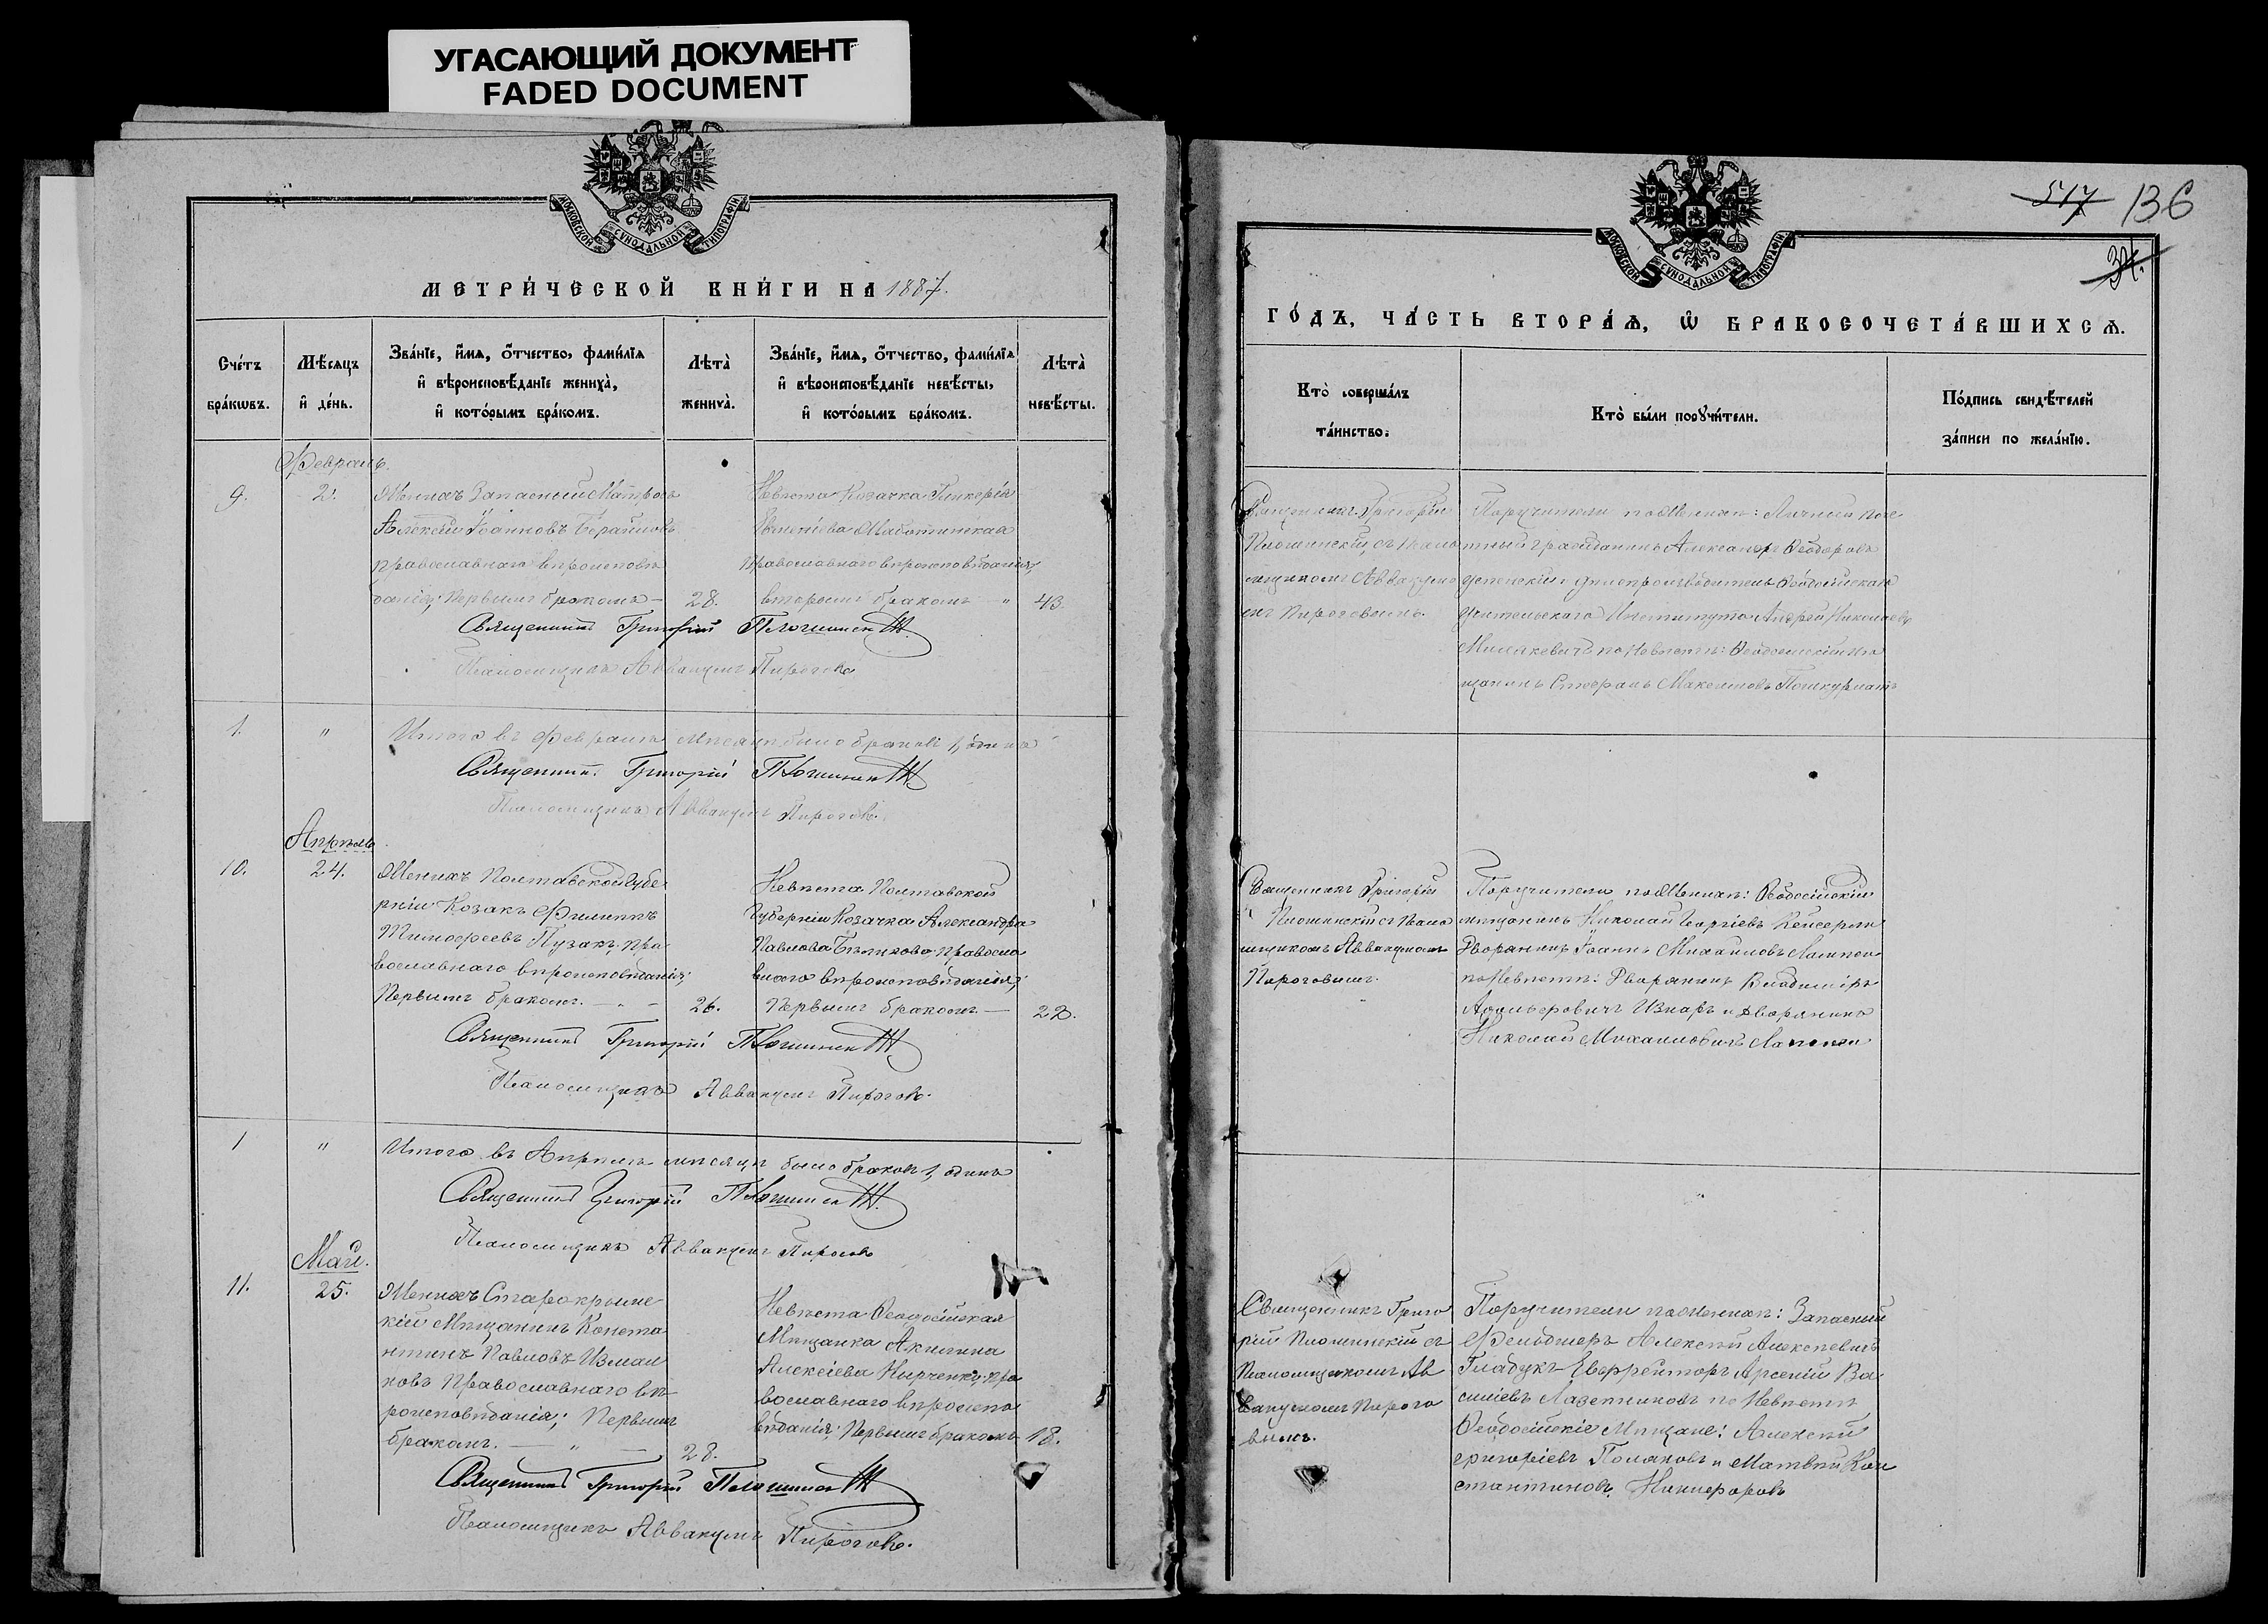 УГАСАЮЩИЙ ДОКУМЕНТ
FADED DOCUMENT
МОСКОВСКОЙ СѴНОДАЛЬНОЙ ТИПОГРАФІИ
МЕТРИЧЕСКОЙ КНИГИ НА 1887.
Счетъ браковъ.
Мѣсяцъ и день.
Званіе, имя, отчество, фамилія и вѣроисповѣданіе жениха, и которымъ бракомъ.
Лѣта жениха.
Званіе, имя, отчество, фамилія и вѣроисповѣданіе невѣсты, и которымъ бракомъ.
Лѣта невѣсты.
Февраль
9. 2.
Женихъ Запасный Матросъ
Алексѣй Іоанновъ
православнаго вѣроисповѣ
данія; Первымъ бракомъ – 28.
Невѣста Козачка Гликерія
Православнаго вѣроисповѣданія,
вторымъ бракомъ " 43.
Священникъ Григорій Плошинскій
Псаломщикъ Аввакумъ Пироговъ
1. " Итого въ Февралѣ мѣсяцѣ было браковъ 1, одинъ
Священникъ Григорій Плошинскій
Псаломщикъ Аввакумъ Пироговъ.
Апрѣль
10. 24.
Женихъ Полтавской Губе
рніи Козакъ Филиппъ
Тимофеевъ Пузакъ, пра
вославнаго вѣроисповѣданія;
Первымъ бракомъ. – " – 26.
Невѣста Полтавской
Губерніи Козачка Александра
Павлова Бѣликова, правосла
внаго вѣроисповѣданія;
Первымъ бракомъ. – 22.
Священникъ Григорій Плошинскій
Псаломщикъ Аввакумъ Пироговъ.
1 " Итого въ Апрѣлѣ мѣсяцѣ было браковъ 1, одинъ
Священникъ Григорій Плошинскій
Псаломщикъ Аввакумъ Пироговъ
Май.
11. 25.
Женихъ Старокрымс
кій Мѣщанинъ Конста
нтинъ Павловъ Измаи
ловъ Православнаго вѣ
роисповѣданія; Первымъ
бракомъ. – " – 28.
Невѣста Ѳеодосійская
Мѣщанка Акилина
Алексіева Кирченко, пра
вославнаго вѣроиспо
вѣданія; Первымъ бракомъ 18.
Священникъ Григорій Плошинскій
Псаломщикъ Аввакумъ Пироговъ.
517 136
34.
МОСКОВСКОЙ СѴНОДАЛЬНОЙ ТИПОГРАФІИ
ГОДЪ, ЧАСТЬ ВТОРАЯ, Ѡ БРАКОСОЧЕТАВШИХСЯ.
Кто совершалъ таинство.
Кто были поручители.
Подпись свидѣтелей записи по желанію.
Священникъ Григорій
Плошинскій съ Псало
мщикомъ Аввакумо
мъ Пироговымъ.
Поручители по Женихѣ: Личный поче
тный гражданинъ Александръ Ѳеодоровъ
дѣлопроизводитель Ѳеодосійскаго
Учительскаго Института Андрей Николаевъ
по Невѣстѣ: Ѳеодосійскій мѣ
щанинъ Стефанъ Максимовъ
Священникъ Григорій
Плошинскій съ Псало
мщикомъ Аввакумомъ
Пироговымъ.
Поручители по Женихѣ: Ѳеодосійскій
мѣщанинъ Николай Георгіевъ
Дворянинъ Іоаннъ Михаиловъ Лампси
по Невѣстѣ: Дворянинъ Владиміръ
и дворянинъ
Николай Михаиловичъ Лампси
Священникъ Григо
рій Плошинскій съ
Псаломщикомъ Ав
вакумомъ Пирого
вымъ.
Поручители по Женихѣ: Запасный
Фельдшеръ Алексѣй Алексѣевъ
Гладукъ Ефрейторъ Арсеній Ва
силіевъ по Невѣстѣ
Ѳеодосійскіе Мѣщане: Алексѣй
Григоріевъ Поляковъ и Матвѣй Кон
стантиновъ Никифоровъ